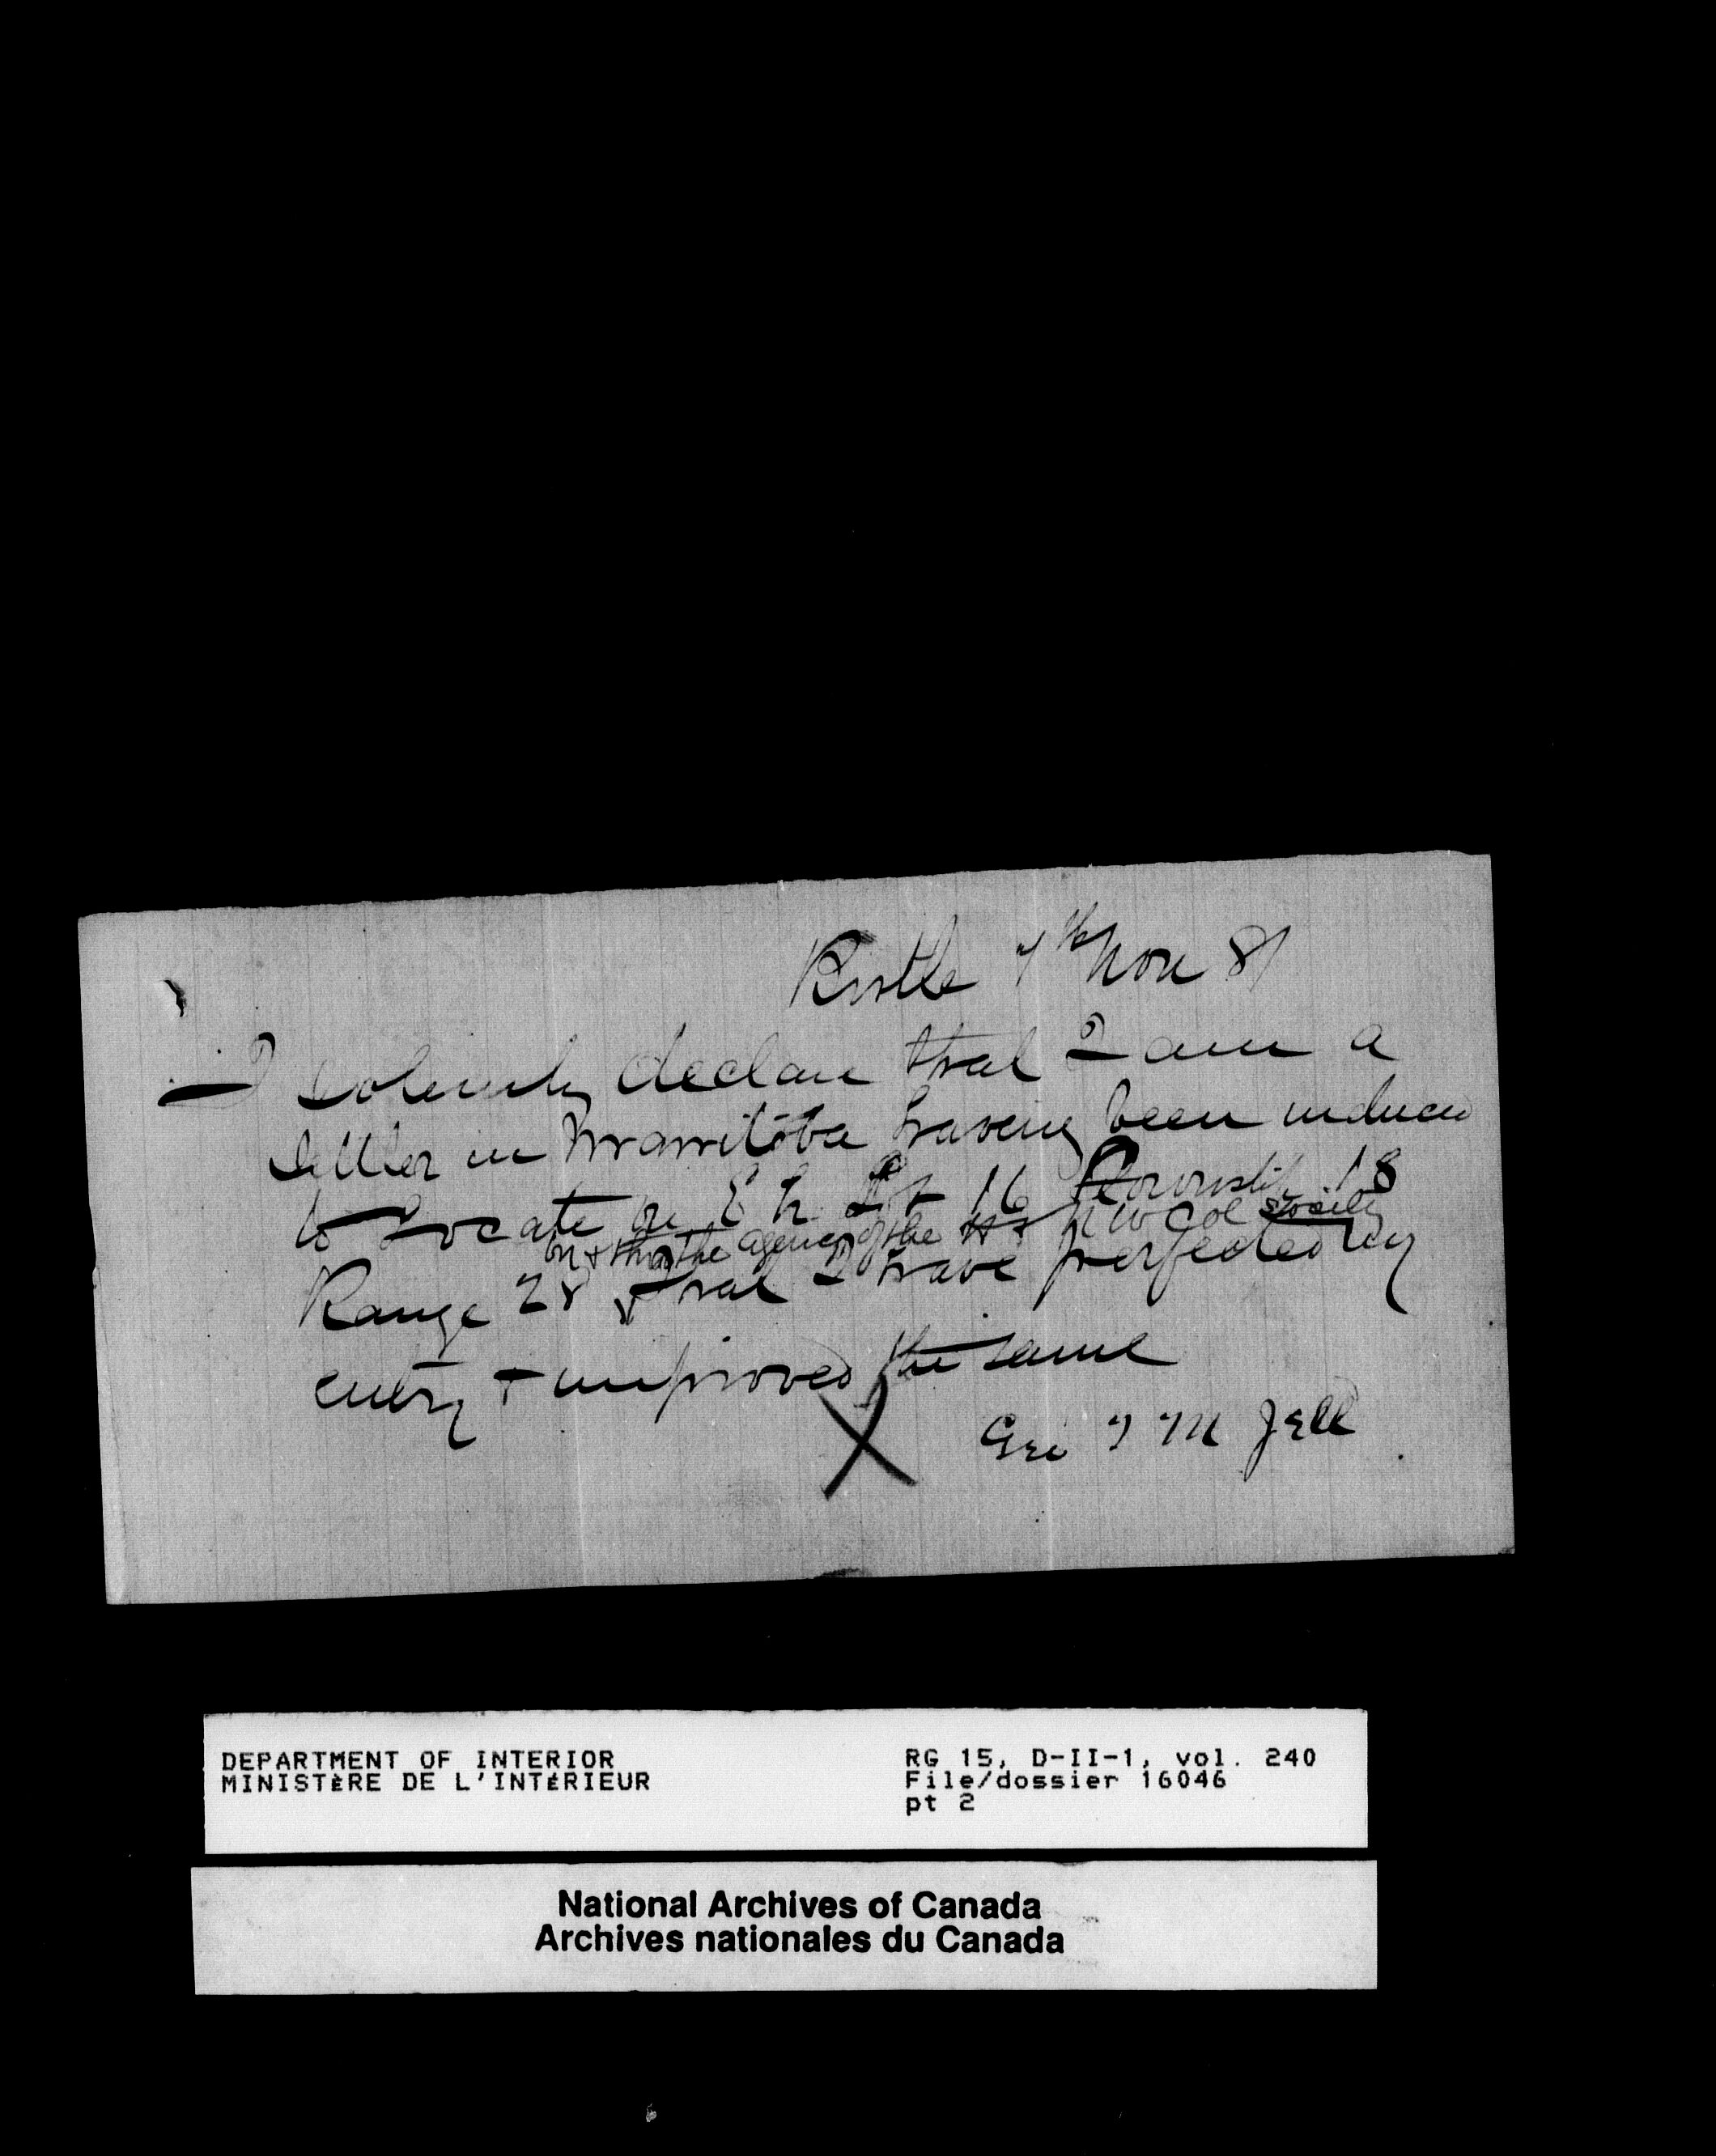 Birtle 7th Nov 81
I solemnly declare that I am a
settler in Manitoba having been induced
to locate on E h Lot 16 Township 18
by & thro the agency of the N W Col society
Range 28 & that I have perfected my
entry & improved the same
X Geo T M Jell
DEPARTMENT OF INTERIOR
MINISTÈRE DE L'INTÉRIEUR
RG 15, D-II-1, vol. 240
File/dossier 16046
pt 2
National Archives of Canada
Archives nationales du Canada